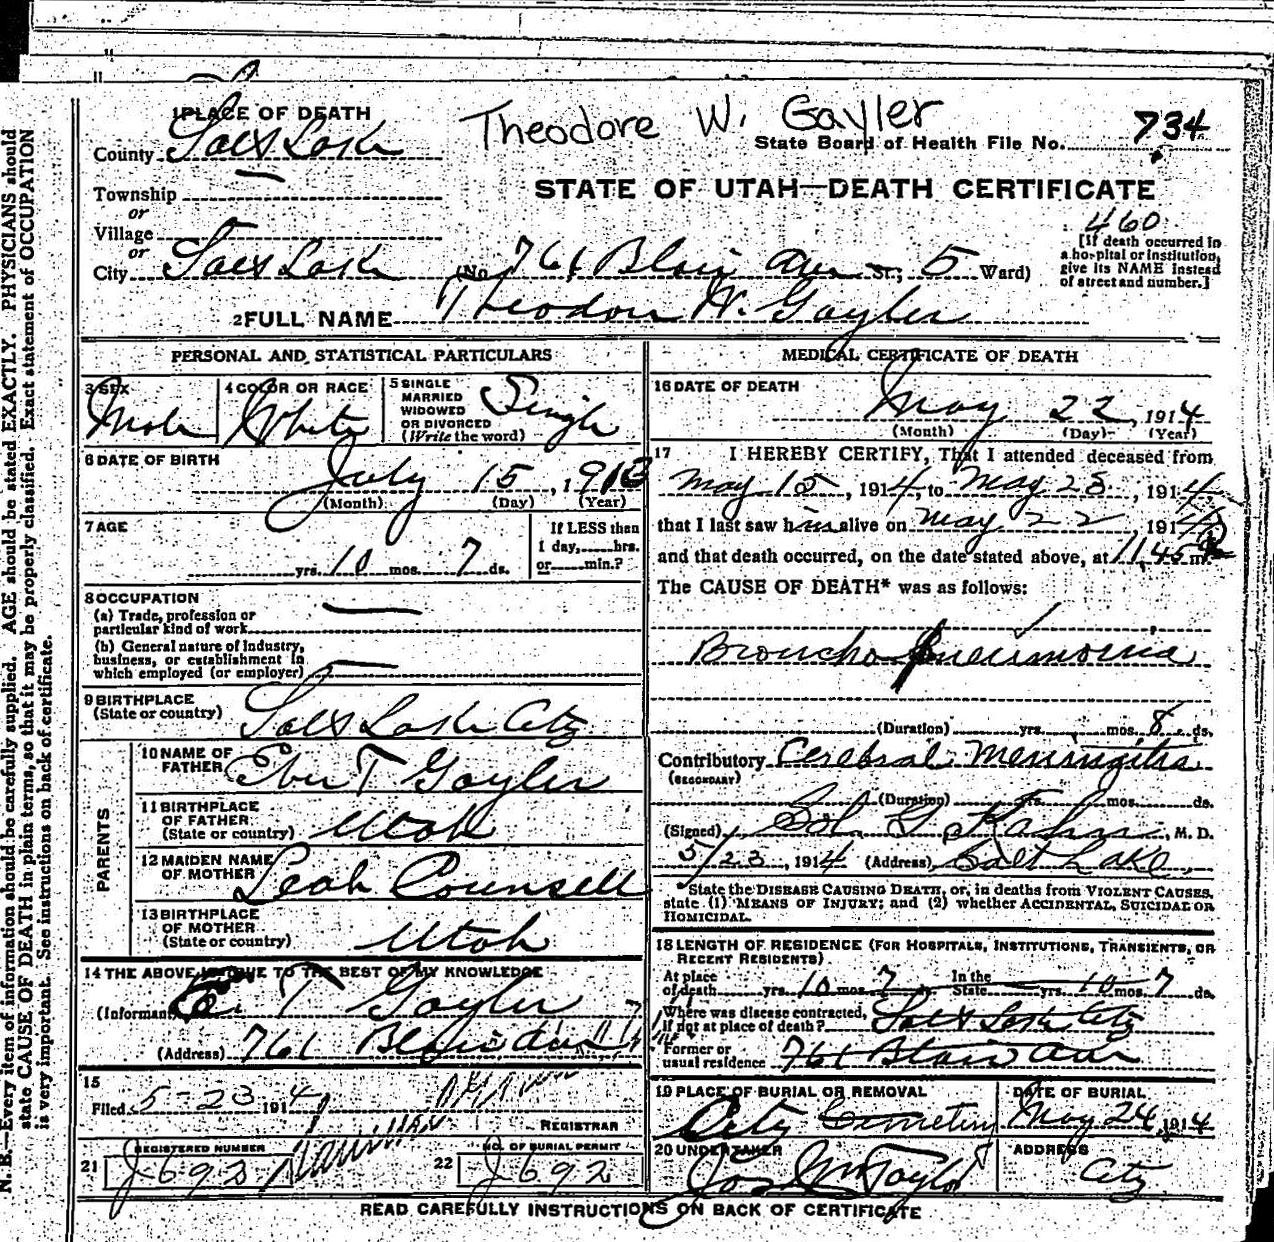 1 PLACE OF DEATH
Theodore W. Gayler
State Board of Health File No. 734
County Salt Lake
STATE OF UTAH—DEATH CERTIFICATE
Township —
or
Village
or
City Salt Lake (No. 761 Blair Ave St.; 5 Ward)
460
[If death occurred in a hospital or institution, give its NAME instead of street and number.]
2 FULL NAME Theodore W. Gayler
PERSONAL AND STATISTICAL PARTICULARS
3 SEX Male
4 COLOR OR RACE White
5 SINGLE MARRIED WIDOWED OR DIVORCED (Write the word) Single
6 DATE OF BIRTH July 15, 1913
(Month) (Day) (Year)
7 AGE yrs. 10 mos. 7 ds.
If LESS than 1 day, hrs. or min.?
8 OCCUPATION
(a) Trade, profession or particular kind of work —
(b) General nature of Industry, business, or establishment in which employed (or employer) —
9 BIRTHPLACE (State or country) Salt Lake City
PARENTS
10 NAME OF FATHER Eber T Gayler
11 BIRTHPLACE OF FATHER (State or country) Utah
12 MAIDEN NAME OF MOTHER Leah Counsell
13 BIRTHPLACE OF MOTHER (State or country) Utah
14 THE ABOVE IS TRUE TO THE BEST OF MY KNOWLEDGE
(Informant) E. T Gayler
(Address) 761 Blair Ave
15
Filed 5-23 1914
REGISTRAR
21 REGISTERED NUMBER J-692
22 NO. OF BURIAL PERMIT J-692
MEDICAL CERTIFICATE OF DEATH
16 DATE OF DEATH
May 22, 1914
(Month) (Day) (Year)
17 I HEREBY CERTIFY, That I attended deceased from
May 15, 1914, to May 23, 1914,
that I last saw him alive on May 22, 1914,
and that death occurred, on the date stated above, at 11.45 m.
The CAUSE OF DEATH* was as follows:
Broncho pneumonia
(Duration) yrs. mos. 8 ds.
Contributory Cerebral Meningitis
(SECONDARY)
(Duration) yrs. mos. ds.
(Signed) Sol. G. Kahn, M. D.
5/23, 1914 (Address) Salt Lake
State the DISEASE CAUSING DEATH, or, in deaths from VIOLENT CAUSES, state (1) MEANS OF INJURY; and (2) whether ACCIDENTAL, SUICIDAL OR HOMICIDAL.
18 LENGTH OF RESIDENCE (FOR HOSPITALS, INSTITUTIONS, TRANSIENTS, OR RECENT RESIDENTS).
At place of death yrs. 10 mos. 7 ds. In the State yrs. 10 mos. 7 ds.
Where was disease contracted, If not at place of death? Salt Lake City
Former or usual residence 761 Blair Ave
19 PLACE OF BURIAL OR REMOVAL City Cemetery
DATE OF BURIAL May 24, 1914
20 UNDERTAKER Jos Wm Taylor
ADDRESS City
READ CAREFULLY INSTRUCTIONS ON BACK OF CERTIFICATE
N. B.—Every item of information should be carefully supplied. AGE should be stated EXACTLY. PHYSICIANS should
state CAUSE OF DEATH in plain terms, so that it may be properly classified. Exact statement of OCCUPATION
is very important. See instructions on back of certificate.